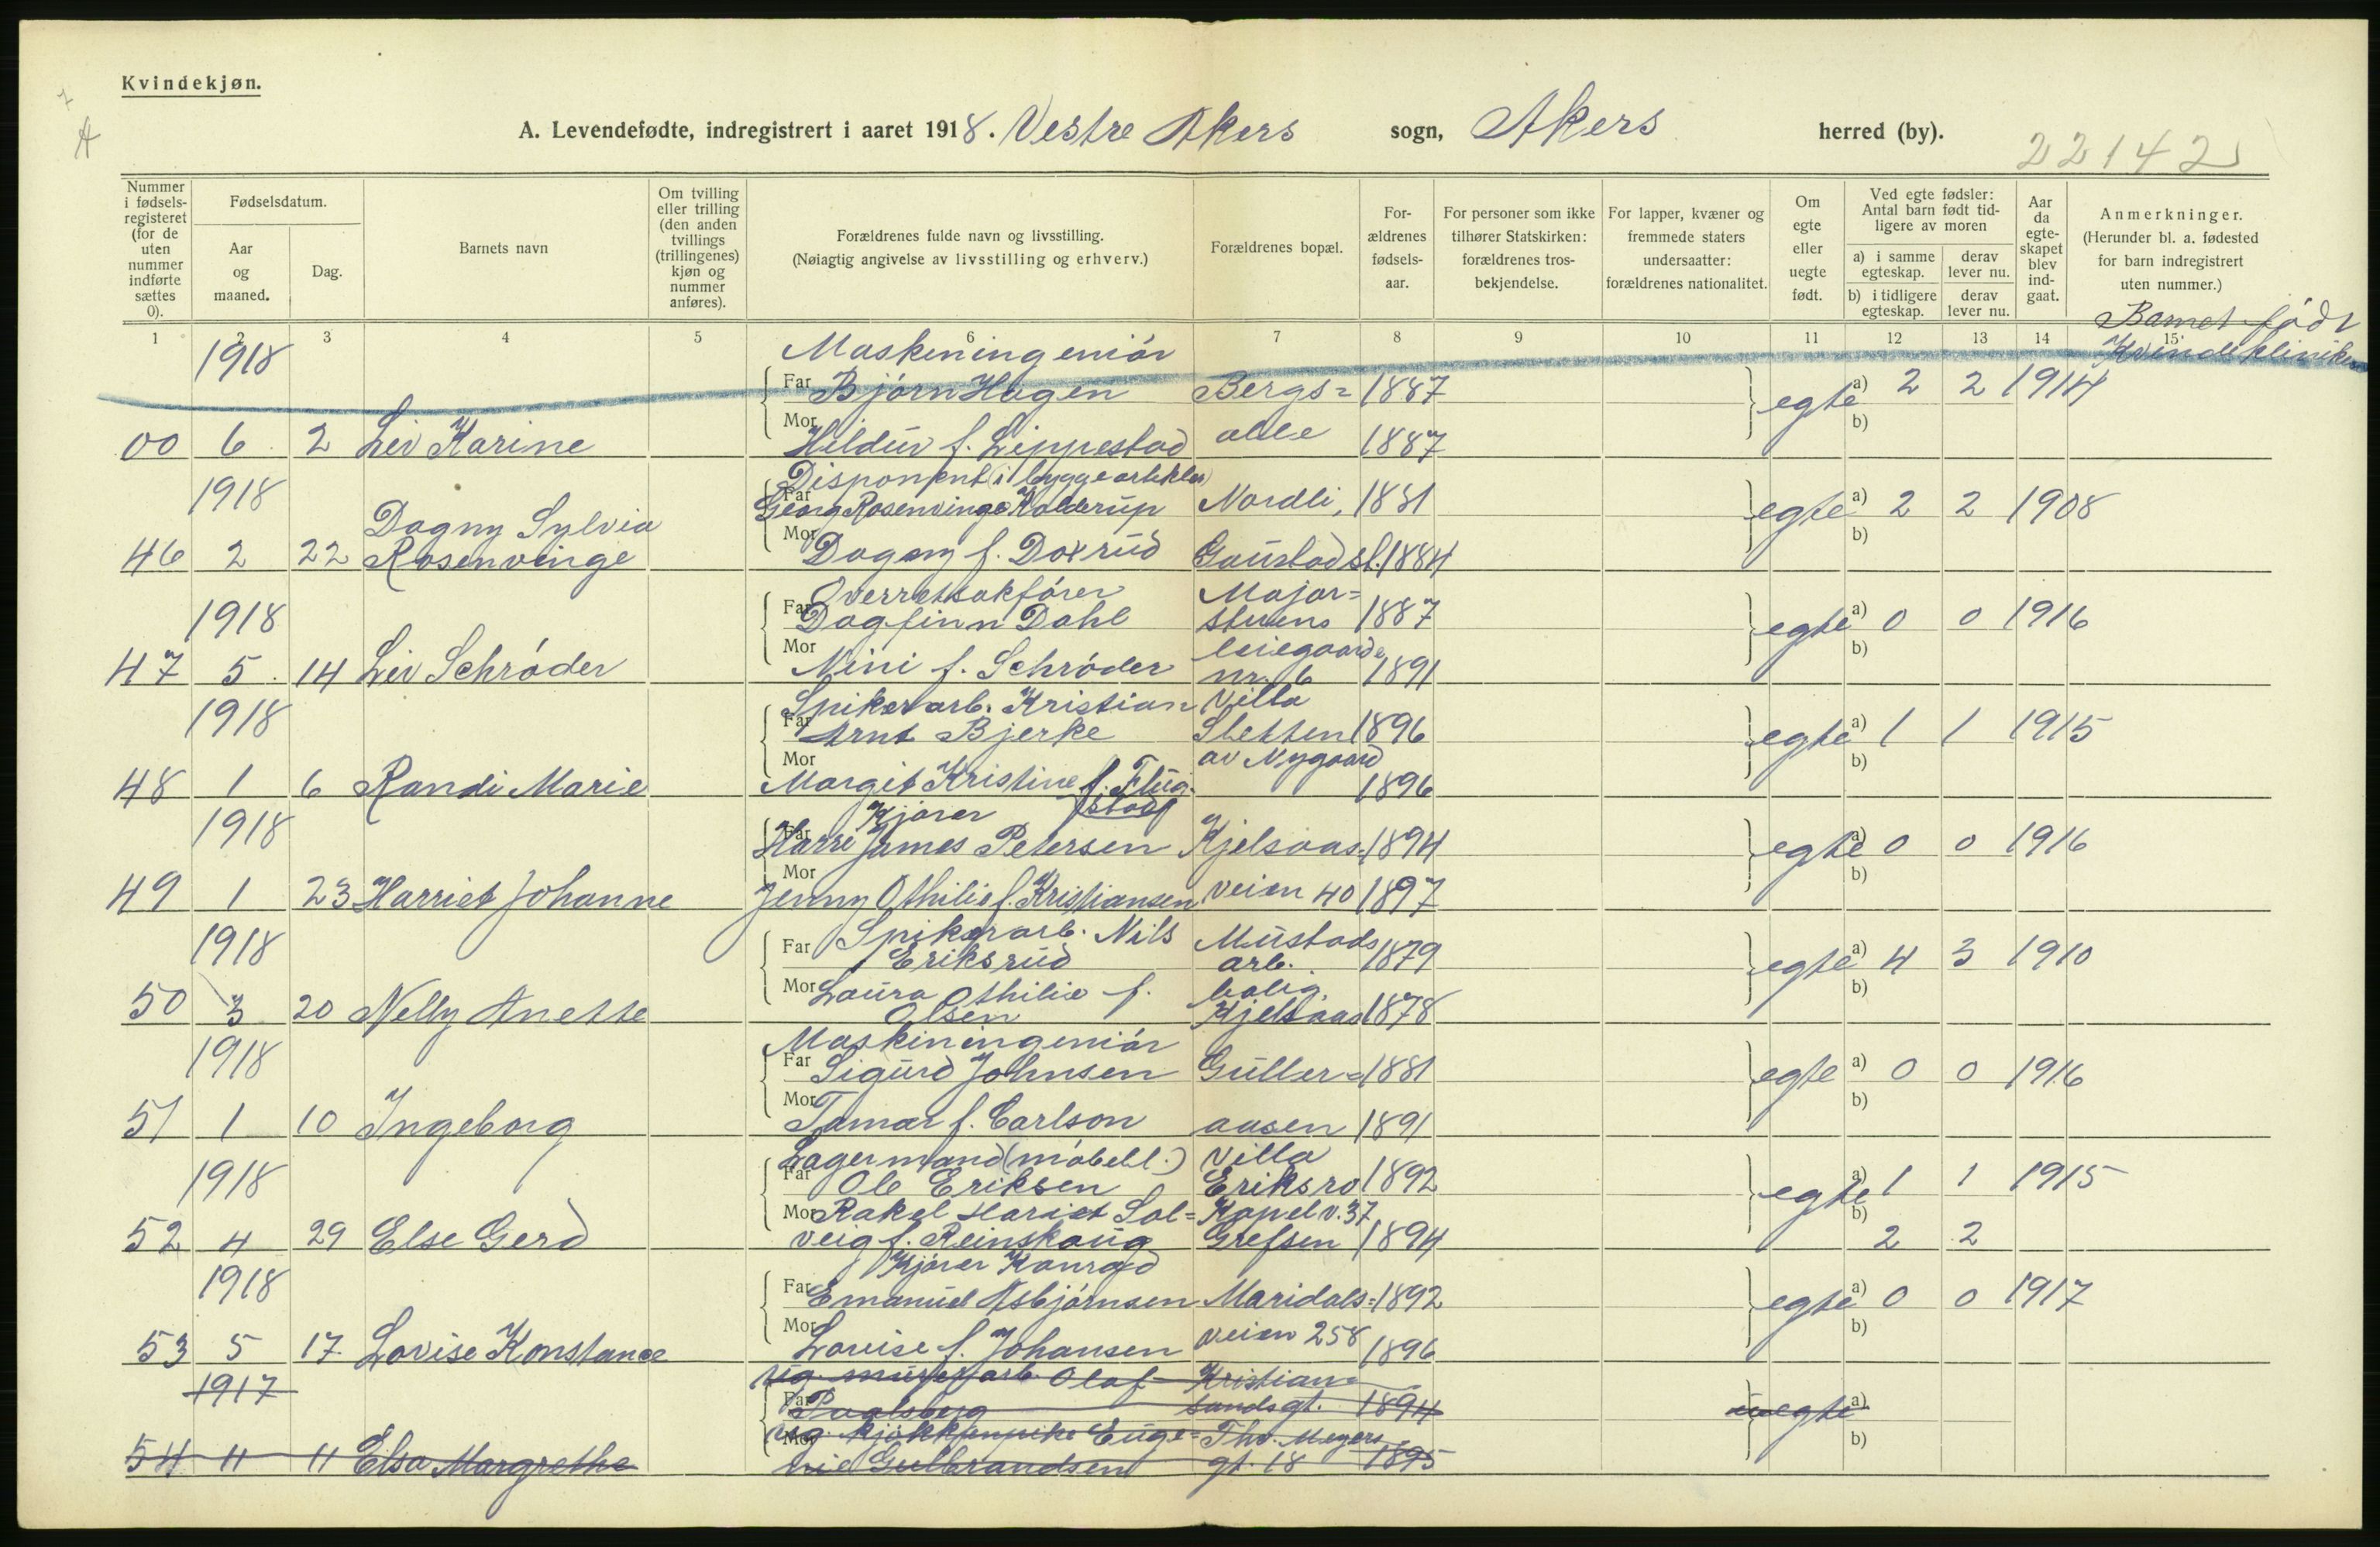 Kvindekjøn.
A. Levendefødte, indregistrert i aaret 1918. Vestre Akers sogn, Akers herred (by).
22142
Nummer i fødselsregisteret (for de uten nummer indførte sættes 0).
Fødselsdatum.
Aar og maaned.
Dag.
Barnets navn
Om tvilling eller trilling (den anden tvillings (trillingenes) kjøn og nummer anføres).
Forældrenes fulde navn og livsstilling.
(Nøiagtig angivelse av livsstilling og erhverv.)
Forældrenes bopæl.
Forældrenes fødselsaar.
For personer som ikke tilhører Statskirken: forældrenes trosbekjendelse.
For lapper, kvæner og fremmede staters undersaatter: forældrenes nationalitet.
Om egte eller uegte født.
Ved egte fødsler: Antal barn født tidligere av moren
a) i samme egteskap.
derav lever nu.
b) i tidligere egteskap.
derav lever nu.
Aar da egteskapet blev indgaat.
Anmerkninger.
(Herunder bl. a. fødested for barn indregistrert uten nummer.)
1 2 3 4 5 6 7 8 9 10 11 12 13 14 15
Barnet født
Kvindekliniken
1918 Maskeningeniør
Far Bjørn Hagen Bergs= 1887 egte a) 2 2 1914
Mor b)
00 6 2 Liv Karine Hildur f. Lippestad alle 1887
1918 Disponent (i byggeartikler)
Far Georg Rosenvinge Kolderup Nordli, 1881 egte a) 2 2 1908
Dagny Sylvia Mor b)
46 2 22 Rosenvinge Dagny f. Doxrud Gaustadst. 1884
1918 Overretssakfører Major=
Far Dagfinn Dahl stuens 1887 egte a) 0 0 1916
Mor leiegaarde b)
47 5 14 Liv Schrøder Nini f. Schrøder nr. 6 1891
1918 Spikerarb. Kristian Villa
Far Arnt Bjerke Sletten 1896 egte a) 1 1 1915
Mor av Nygaard b)
48 1 6 Randi Marie Margit Kristine f. Flug= 1896
stad
1918 Kjører
Far Harri James Petersen Kjelsaas= 1894 egte a) 0 0 1916
Mor b)
49 1 23 Harriet Johanne Jenny Othilie f. Kristiansen veien 40 1897
1918 Spikerarb. Nils Mustads
Far Eriksrud arb. 1879 egte a) 4 3 1910
Mor Laura Othilie f. bolig. b)
50 3 20 Nelly Anette Olsen Kjelsaas 1878
1918 Maskiningeniør
Far Sigurd Johnsen Guller= 1881 egte a) 0 0 1916
Mor b)
51 1 10 Ingeborg Tamar f. Carlson aasen 1891
1918 Lagermand (møbell.) Villa
Far Ole Eriksen Eriksro 1892 egte a) 1 1 1915
Mor Rakel Hariet Sol= Kapelv. 37 b)
52 4 29 Else Gerd veig f. Reinskaug Grefsen 1894 2 2
1918 Kjører Konrad
Far Emanuel Asbjørnsen Maridals= 1892 egte a) 0 0 1917
Mor b)
53 5 17 Lovise Konstance Lovise f. Johansen veien 258 1896
1917 Ug. murerarb. Olaf Kristian=
Far sandsgt. 1894 uegte a)
Mor Ug. kjøkkenpike Euge= Thv. Meyers b)
54 11 11 Elsa Margrethe nie Gulbrandsen gt. 18 1895